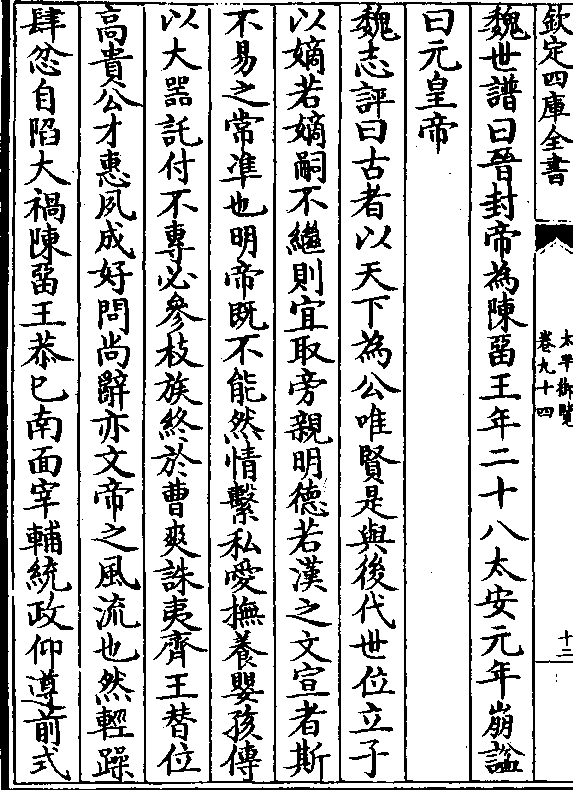 欽定四庫全書
太平御覽
卷九十四
十二
魏世譜曰晉封帝為陳留王年二十八太安元年崩諡
曰元皇帝
魏志評曰古者以天下為公唯賢是與後代世位立子
以嫡若嫡嗣不繼則宜取旁親明德若漢之文宣者斯
不易之常准也明帝既不能然情繫私愛撫養嬰孩傳
以大器託付不專必參枝族終於曹爽誅夷齊王替位
高貴公才惠夙成好問尚辭亦文帝之風流也然輕躁
肆忿自陷大禍陳留王恭已南面宰輔統政仰遵前式